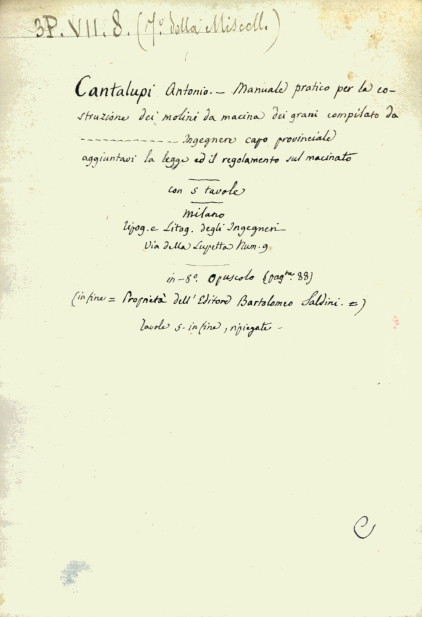 3P. VII. 8. (7º della Miscell.)
Cantalupi Antonio. — Manuale pratico per la co-
struzione dei molini da macina dei grani compilato da
--------------- Ingegnere capo provinciale
aggiuntavi la legge ed il regolamento sul macinato
con 5 tavole
Milano
Tipog. e Litog. degli Ingegneri
Via della Lupetta Num. 9.
in-8º. Opuscolo (pagne 88)
(in fine = Proprietà dell'Editore Bartolomeo Saldini. =)
Tavole 5. in fine, ripiegate -